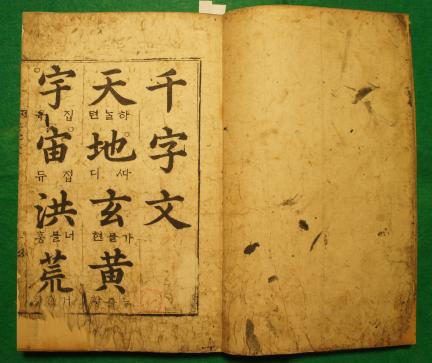 千字文
天 하ᄂᆞᆯ 텬
地 ᄯᅡ 디
玄 가믈 현
黃
宇 집 우
宙 집 듀
洪 너블 홍
荒